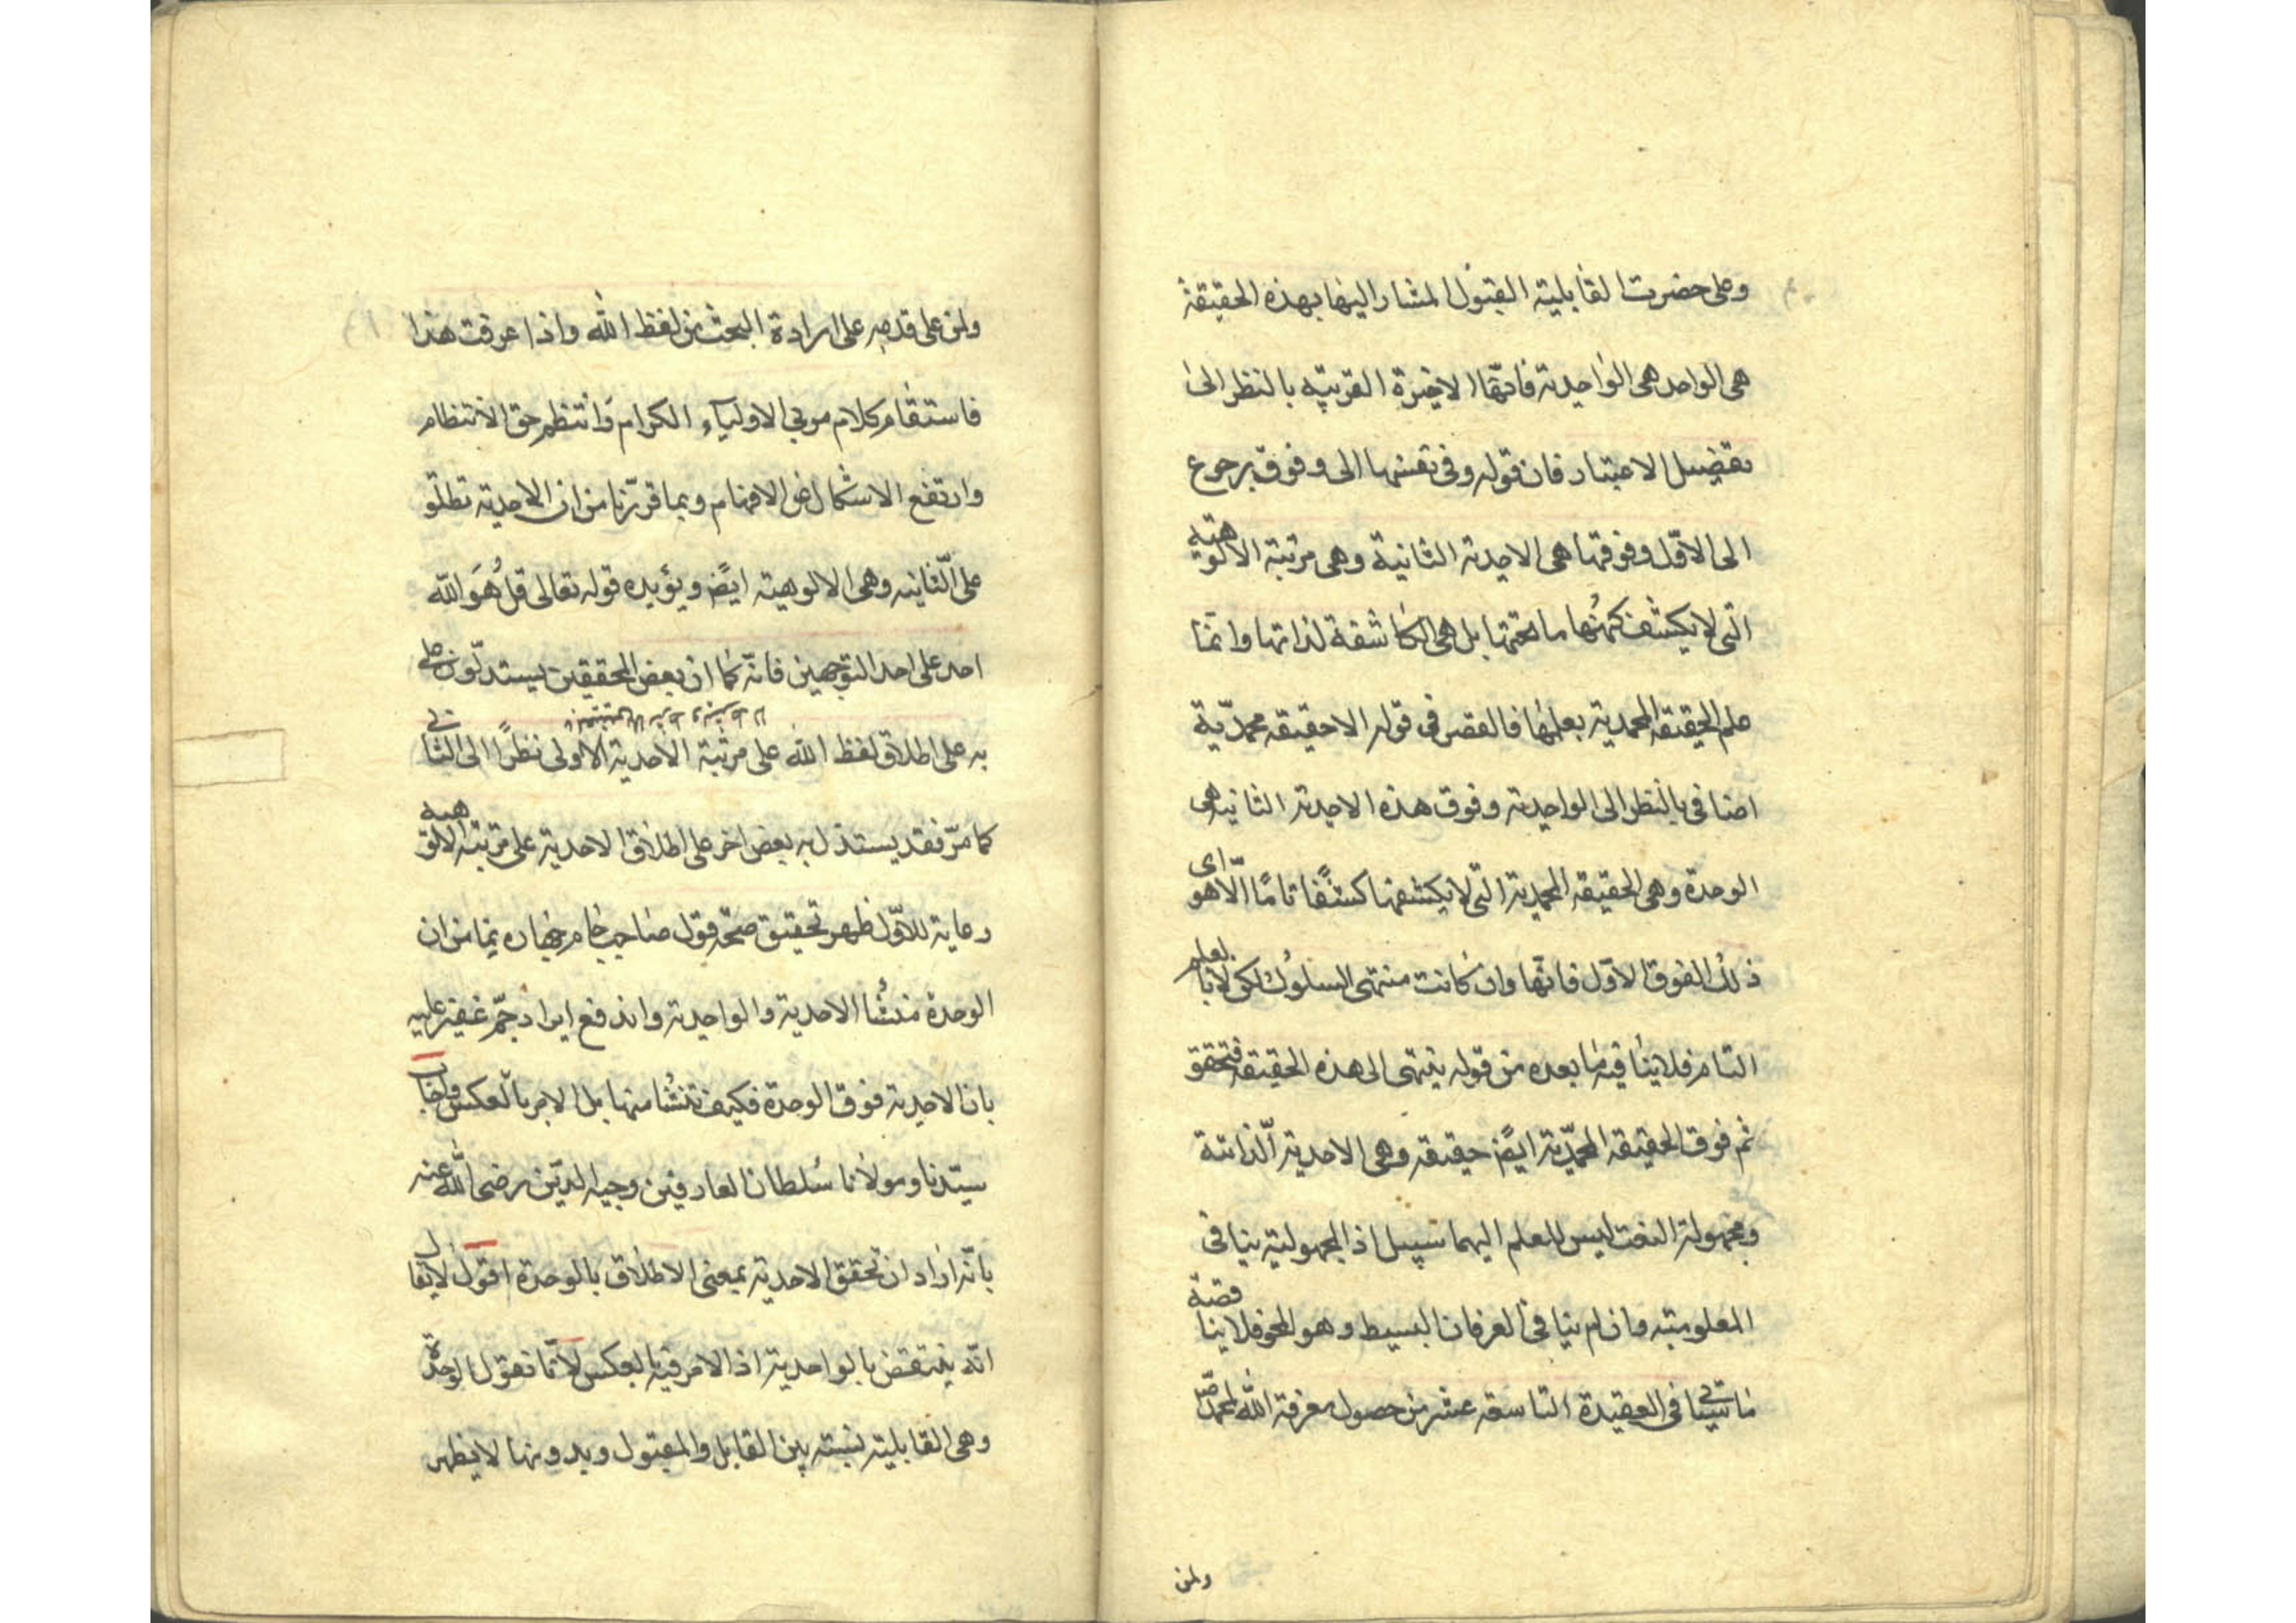 وعلى حضرت القابلية القبول المشار اليها بهذه الحقيقة
هى الواحد هى الواحدية فانّها الاخيرة القريبة بالنظر الى
تفصيل الاعتبار فان قوله وفى نفسها الى وفوق يرجع
الى الاوّل وفوقها هى الاحدية الثانية وهى مرتبة الالوهية
التى لا يكشف كنهُها ما تحتها بل هى الكاشفة لذاتها وانما
علم الحقيقة المحمدية بعلمها فالقصر فى قوله الا حقيقة محمديّة
اضافى بالنظر الى الواحدية وفوق هذه الاحدية الثانية هى
الوحدة وهى الحقيقة المحمدية التى لا يكشفها كشفًا تامًا الّا هو اى
ذلك الفوق الاوّل فانّها وان كانت منتهى السلوك لكن لا بالعلم
التام فلا ينافيه ما بعده من قوله ينتهى الى هذه الحقيقة فتحقق
ثم فوق الحقيقة المحمّدية ايضً حقيقة وهى الاحدية الّذاتية
ومجهولة النعت ليس للعلم اليهما سبيل اذ المجهولية ينافى
المعلومية وان لم ينافى العرفان البسيط وهو المحو فلا يناقضه
ما سياتى فى العقيدة التاسعة عشر من حصول معرفة الله لمحمد ص
ولمن
ولمن على قدمه على ارادة البحث من لفظ الله واذا عرفت هذا
فاستقام كلام مربى الاولياء الكرام وانتظم حق الانتظام
وارتفع الاشكال عن الافهام وبما قرّرنا من ان الاحدية تطلق
على الثانية وهى الالوهية ايضً ويؤيده قوله تعالى قل هُوَ الله
احد على احد التوجهين فانّه كما ان بعض المحققين يستدلّون على
به على اطلاق لفظ الله على مرتبة الاحدية الاولى نظرًا الى الثانى
كما مرّ فقد يستدل به بعض اخر على اطلاق الاحدية على مرتبة الالوهية
رعاية للاوّل ظهر تحقيق صحّة قول صاحب جام جهان نما من ان
الوحدة منشأ الاحدية والواحدية واندفع ايراد جمّ غفير عليه
بان الاحدية فوق الوحدة فكيف تنشأ منها بل الامر بالعكس واجاب
سيّدنا ومولانا سُلطان العارفين وجيه الدّين رضى الله عنه
بانّه اراد ان تحقق الاحدية بمعنى الاطلاق بالوحدة اقول لا يقال
انّه ينتقض بالواحدية اذ الامر فيه بالعكس لانّا نقول الوحدة
وهى القابلية نسبة بين القابل والمقبول وبدونها لا يظهر